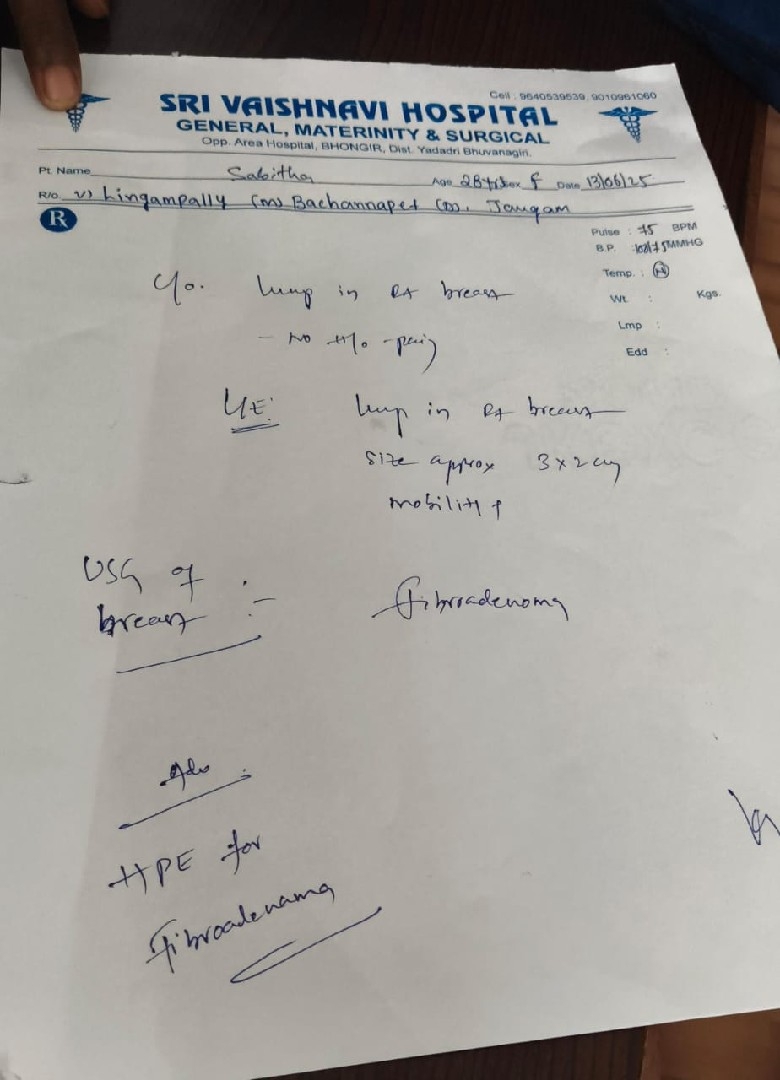 Cell : 9640539539, 9010961060
SRI VAISHNAVI HOSPITAL
GENERAL, MATERINITY & SURGICAL
Opp. Area Hospital, BHONGIR, Dist. Yadadri Bhuvanagiri.
Pt. Name Sabitha Age 28 Sex f Date 13/06/25
R/o. V) Lingampally (m) Bachannapet (D). Jangam
R
Pulse : 75 BPM
B.P : MMHG
Temp. : N
Wt : Kgs.
Lmp :
Edd :
C/o. lump in Rt breast
- No H/o - pain
L/E: lump in Rt breast
size approx 3 x 2 cm
mobility +
USG of
breast :- Fibroadenoma
Adv :
HPE for
Fibroadenoma